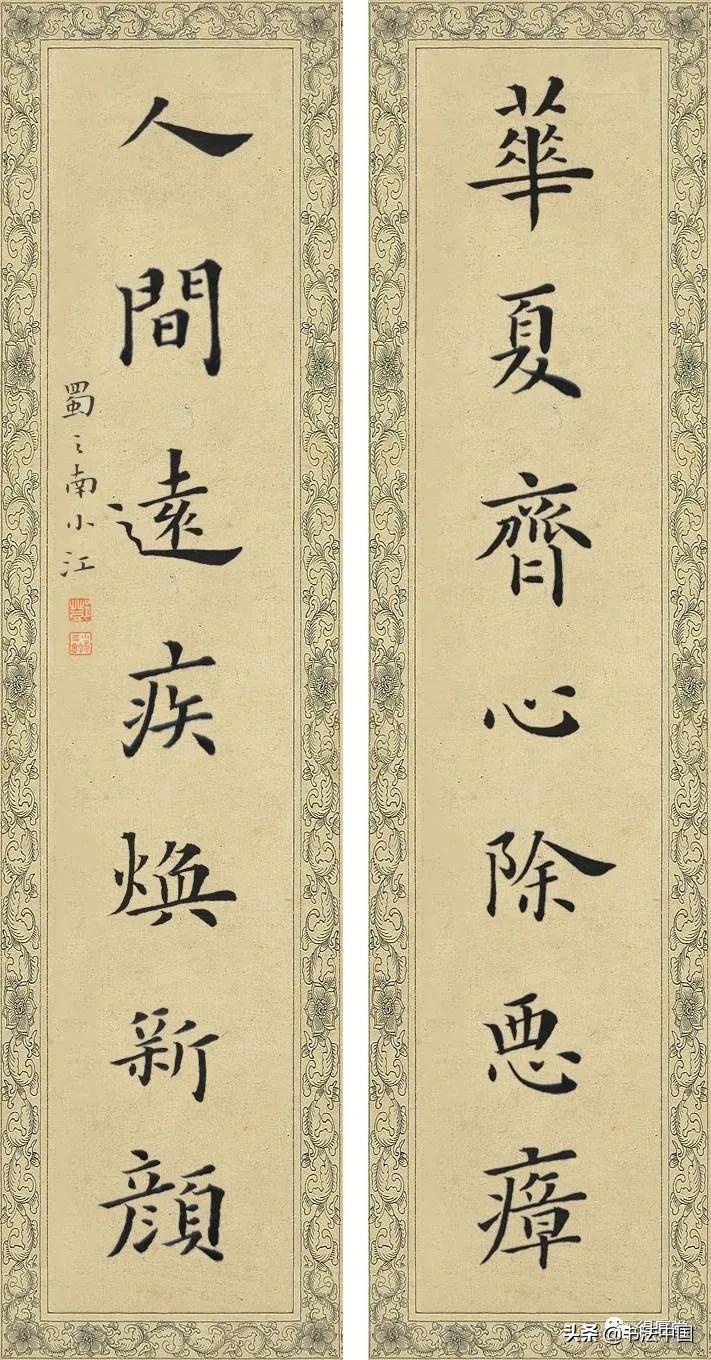 華夏齊心除惡瘴
人間遠疾煥新顔
蜀之南小江
头条 @书法中国